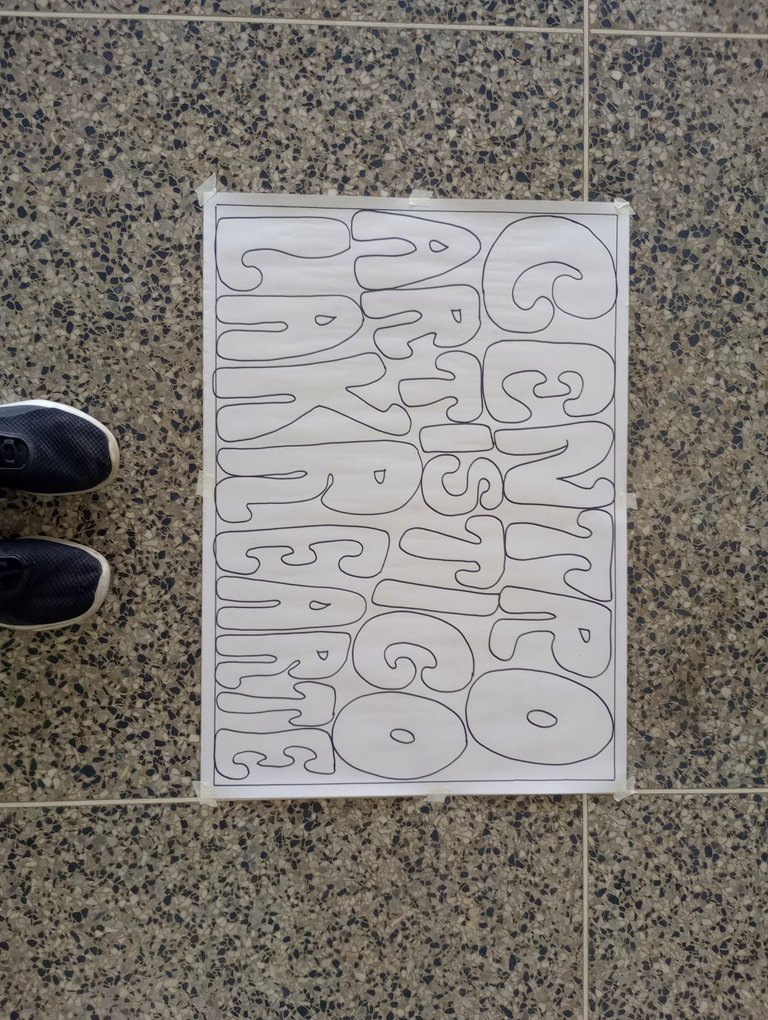 CENTRO
ARTISTICO
LAKREARTE